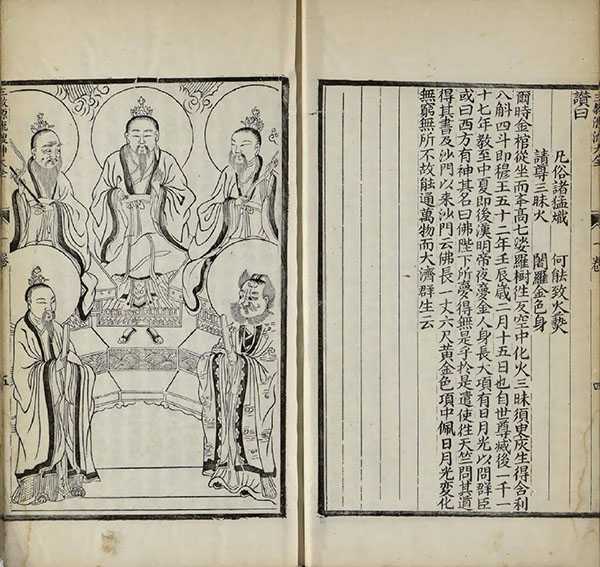 讚曰
凡俗諸猛熾　何能致火爇
請尊三昧火　闍羅金色身
爾時金棺從坐而舉高七娑羅樹徃反空中化火三昧須臾灰生得舍利
八斛四斗即穆王五十二年壬辰歲二月十五日也自世尊滅後一千一
十七年教至中夏即後漢明帝夜夢金人身長大項有日月光以問群臣
或曰西方有神其名曰佛陛下所夢得無是乎於是遣使徃天竺問其道
得其書及沙門以來沙門云佛長一丈六尺黃金色項中佩日月光變化
無窮無所不故能通萬物而大濟群生云
一卷
四
五